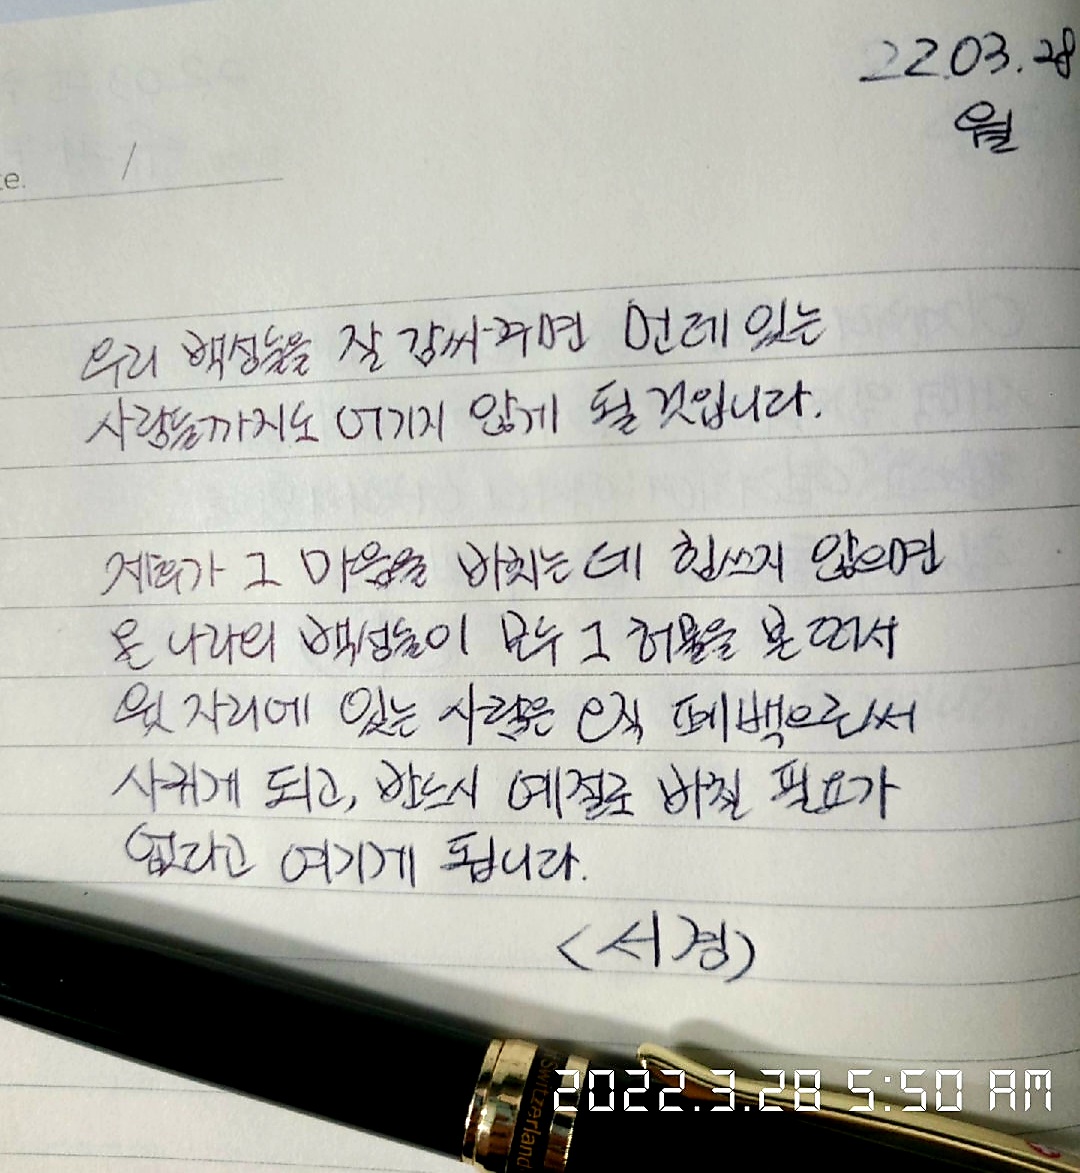 22.03.28
월
te. /
우리 백성들을 잘 감싸주면 먼데 있는
사람들까지도 어기지 않게 될 것입니다.
제후가 그 마음을 바치는데 힘쓰지 않으면
온 나라의 백성들이 모두 그 허물을 본 떠서
윗 자리에 있는 사람은 오직 폐백으로서
사귀게 되고, 반드시 예절로 바칠 필요가
없다고 여기게 됩니다.
<서경>
Switzerland
2022.3.28 5:50 AM